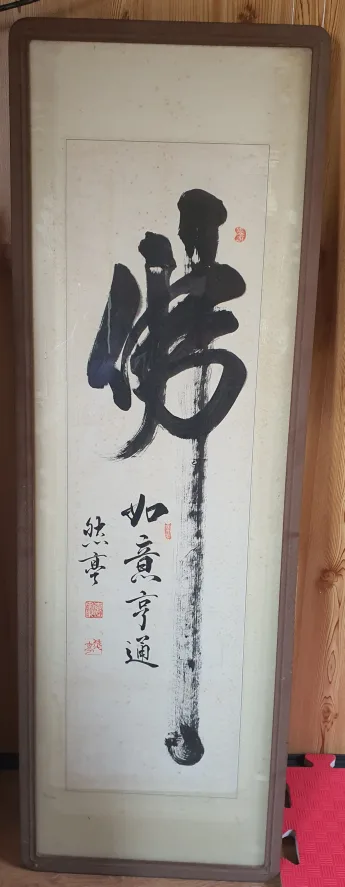 佛
如意亨通
然亭